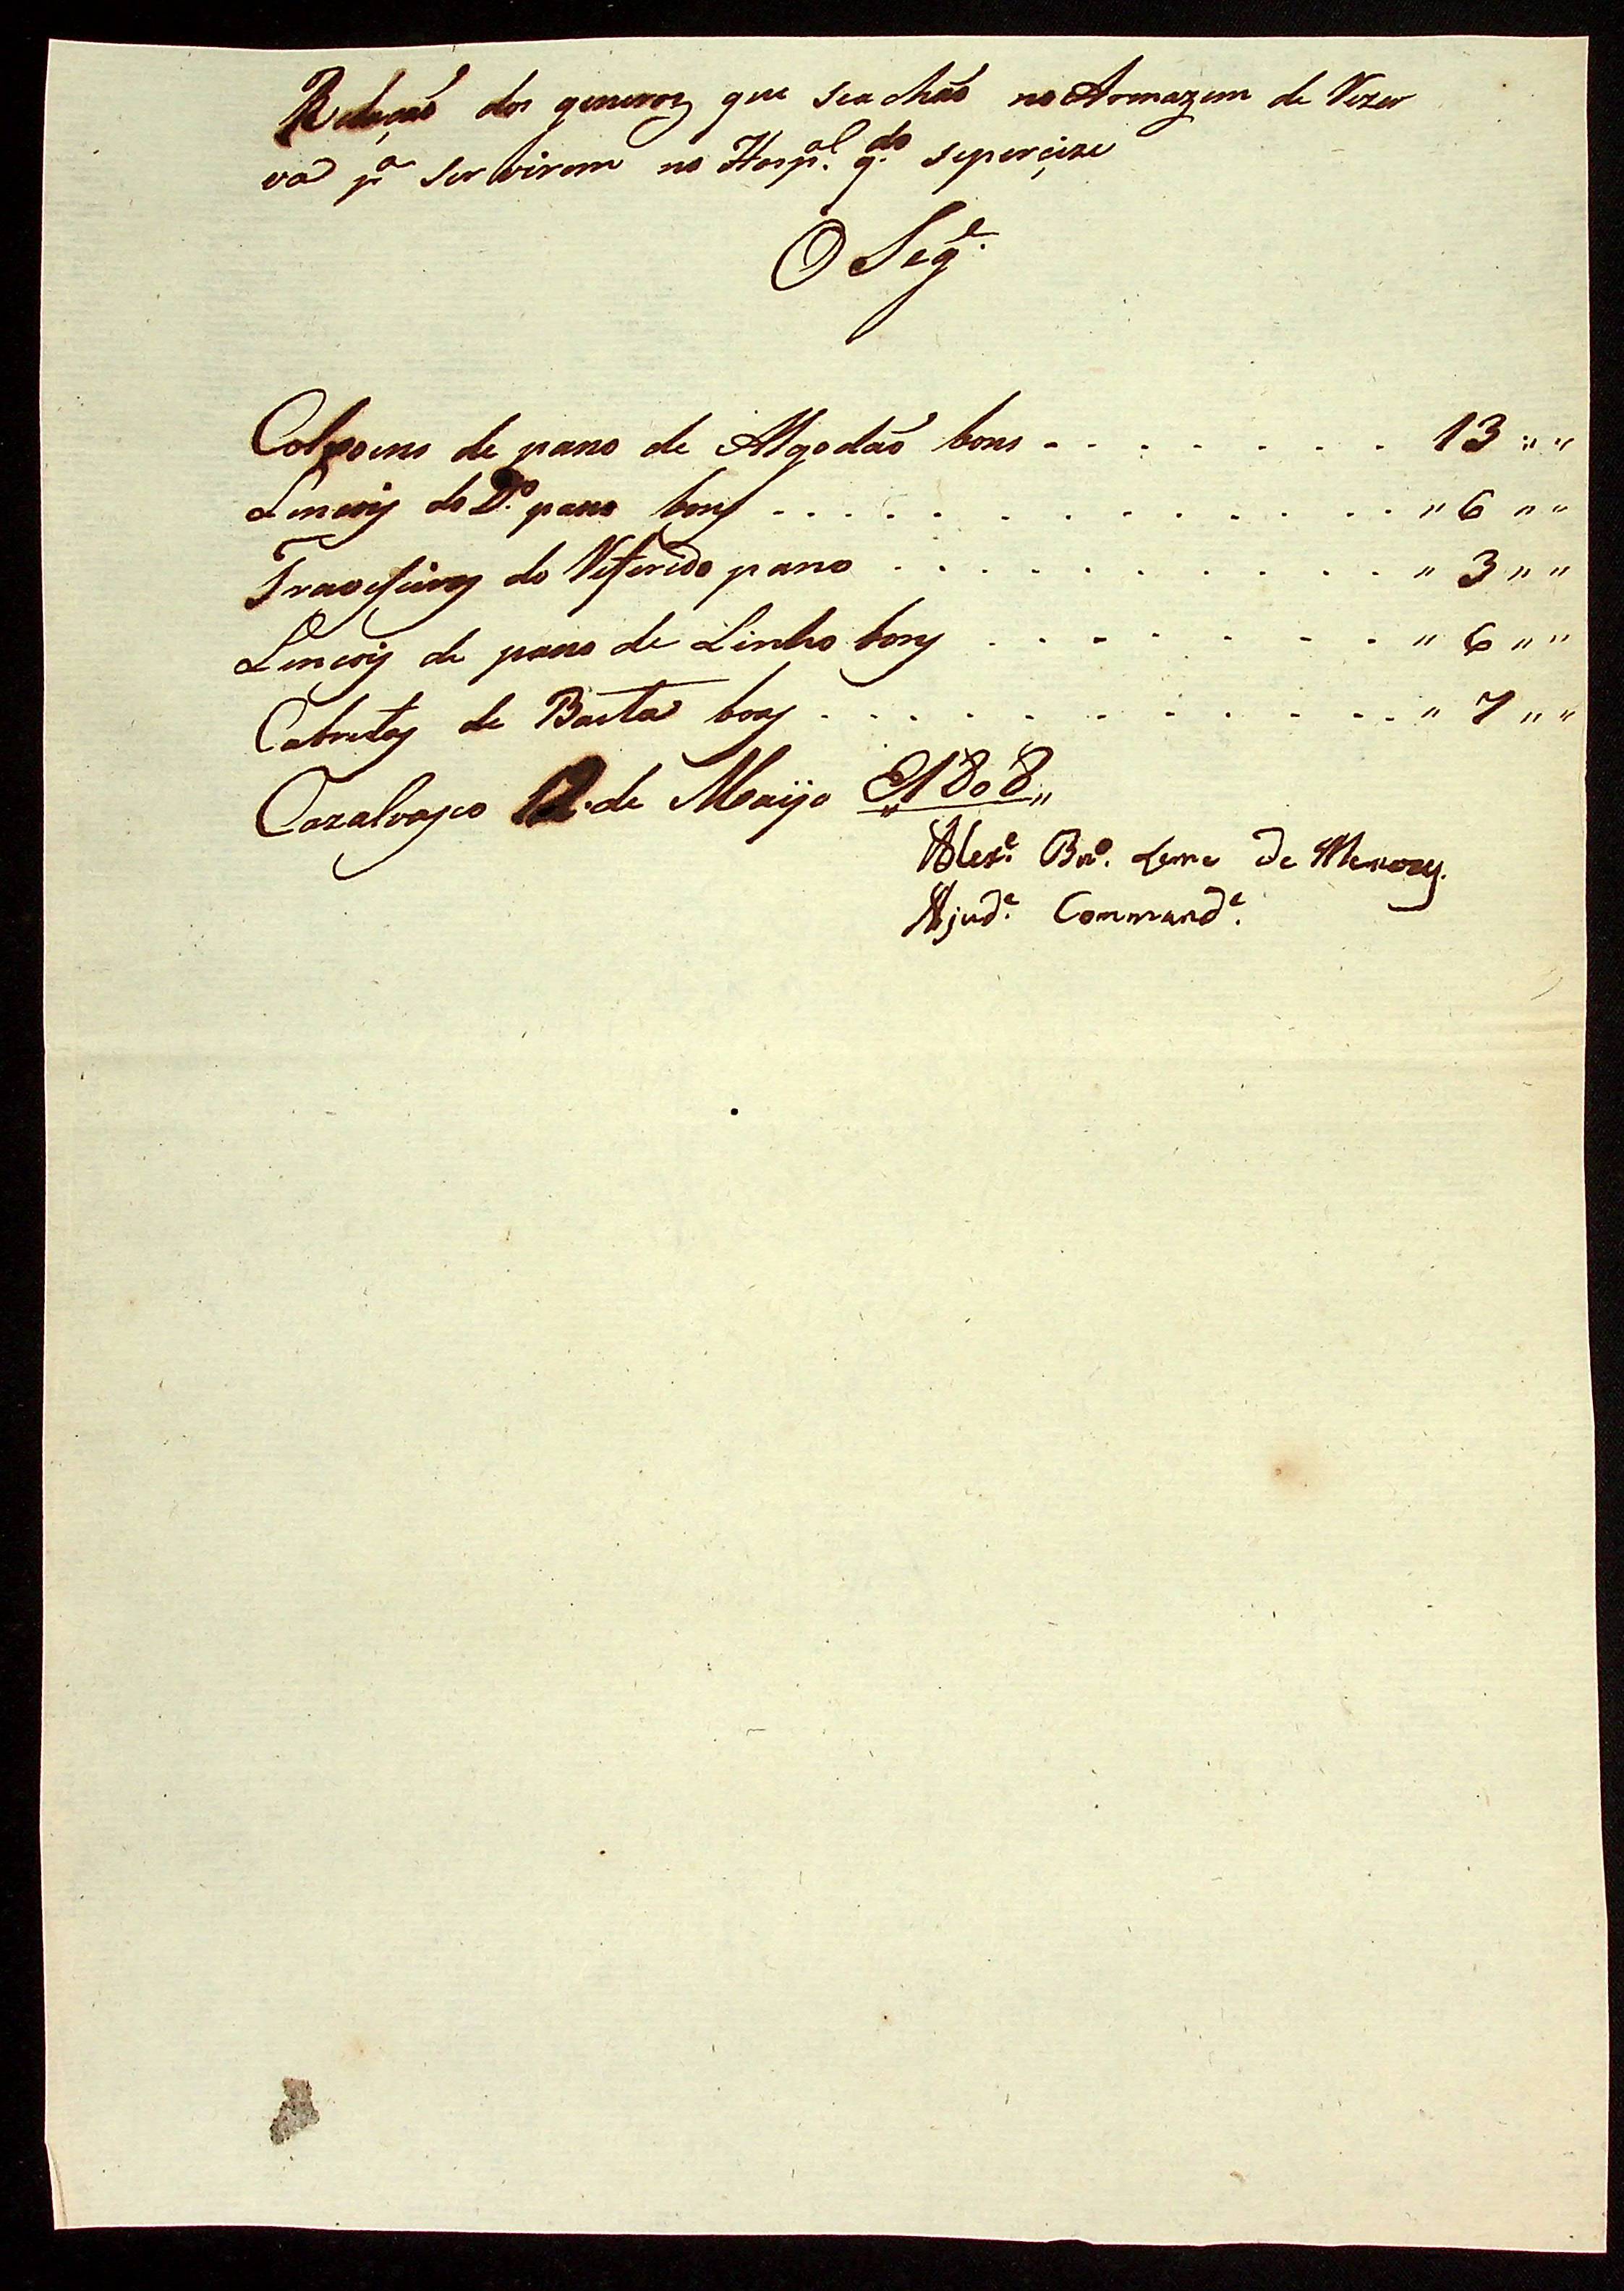 Relaçaõ dos generos que seachaõ no Armazem de Rezer
va p.ª servirem no Hosp.al q.do seperçize
O Seg.e
Colxoens de pano de Algodaõ bons - - - - - - - - 13 " "
Lencois do D.º pano bons . . . . . . . . . . . . . " 6 " "
Travesseiros do Referido pano . . . . . . . . . . . " 3 " "
Lençois de pano de Linho bons . . . . . . . . " 6 " "
Cubertas de Baeta boas . . . . . . . . . . . . " 7 " "
Cazalvasco 12 de Mayo 1808 "
Alex.e Bn.º Leme de Menezes.
Ajud.e Command.e